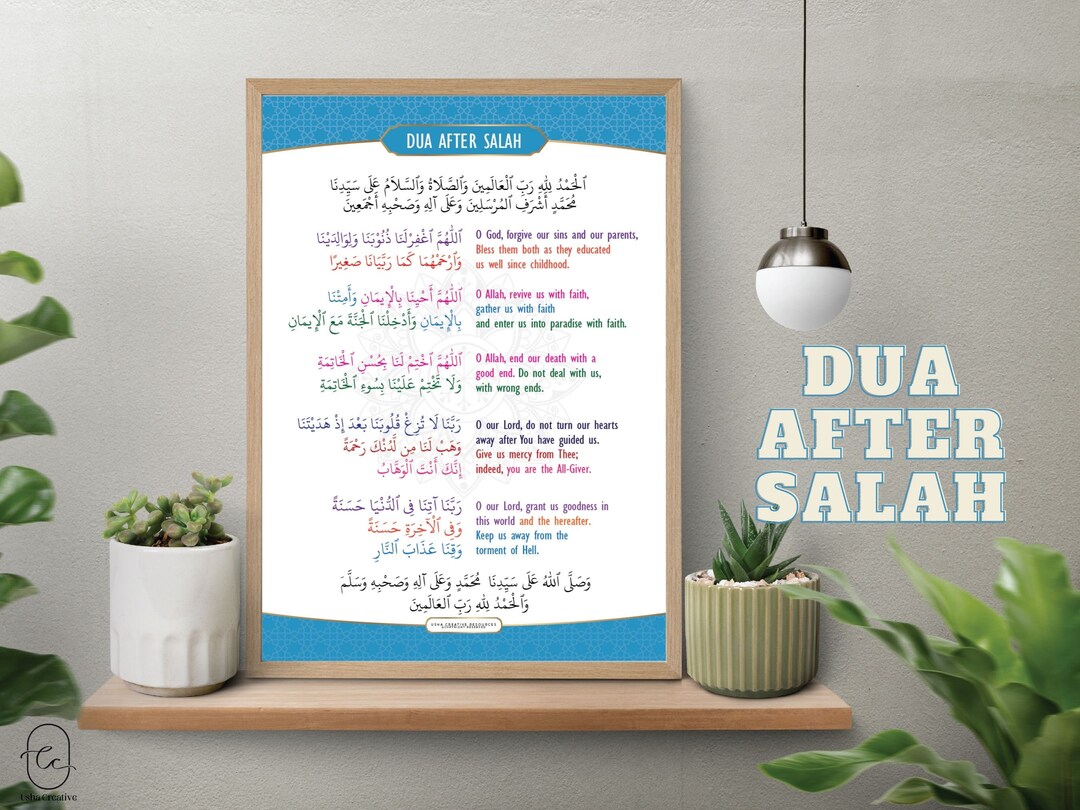 DUA AFTER SALAH
اَلْحَمْدُ لِلّٰهِ رَبِّ الْعَالَمِينَ وَالصَّلَاةُ وَالسَّلَامُ عَلَى سَيِّدِنَا
مُحَمَّدٍ أَشْرَفِ المُرْسَلِينَ وَعَلَى آلِهِ وَصَحْبِهِ أَجْمَعِينَ
اَللّٰهُمَّ اغْفِرْلَنَا ذُنُوْبَنَا وَلِوَالِدَيْنَا
وَارْحَمْهُمَا كَمَا رَبَّيَانَا صَغِيرًا
O God, forgive our sins and our parents,
Bless them both as they educated
us well since childhood.
اَللّٰهُمَّ أَحْيِنَا بِالْإِيمَانِ وَأَمِتْنَا
بِالْإِيمَانِ وَأَدْخِلْنَا الْجَنَّةَ مَعَ الْإِيمَانِ
O Allah, revive us with faith,
gather us with faith
and enter us into paradise with faith.
اَللّٰهُمَّ اخْتِمْ لَنَا بِحُسْنِ الْخَاتِمَةِ
وَلَا تَخْتِمْ عَلَيْنَا بِسُوءِ الْخَاتِمَةِ
O Allah, end our death with a
good end. Do not deal with us,
with wrong ends.
رَبَّنَا لَا تُزِغْ قُلُوبَنَا بَعْدَ إِذْ هَدَيْتَنَا
وَهَبْ لَنَا مِن لَّدُنْكَ رَحْمَةً
إِنَّكَ أَنْتَ الْوَهَّابُ
O our Lord, do not turn our hearts
away after You have guided us.
Give us mercy from Thee;
indeed, you are the All-Giver.
رَبَّنَا آتِنَا فِي الدُّنْيَا حَسَنَةً
وَفِي الْآخِرَةِ حَسَنَةً
وَقِنَا عَذَابَ النَّارِ
O our Lord, grant us goodness in
this world and the hereafter.
Keep us away from the
torment of Hell.
وَصَلَّى اللهُ عَلَى سَيِّدِنَا مُحَمَّدٍ وَعَلَى آلِهِ وَصَحْبِهِ وَسَلَّمَ
وَالْحَمْدُ لِلّٰهِ رَبِّ العَالَمِينَ
USHA CREATIVE RESOURCES
DUA
AFTER
SALAH
Usha Creative